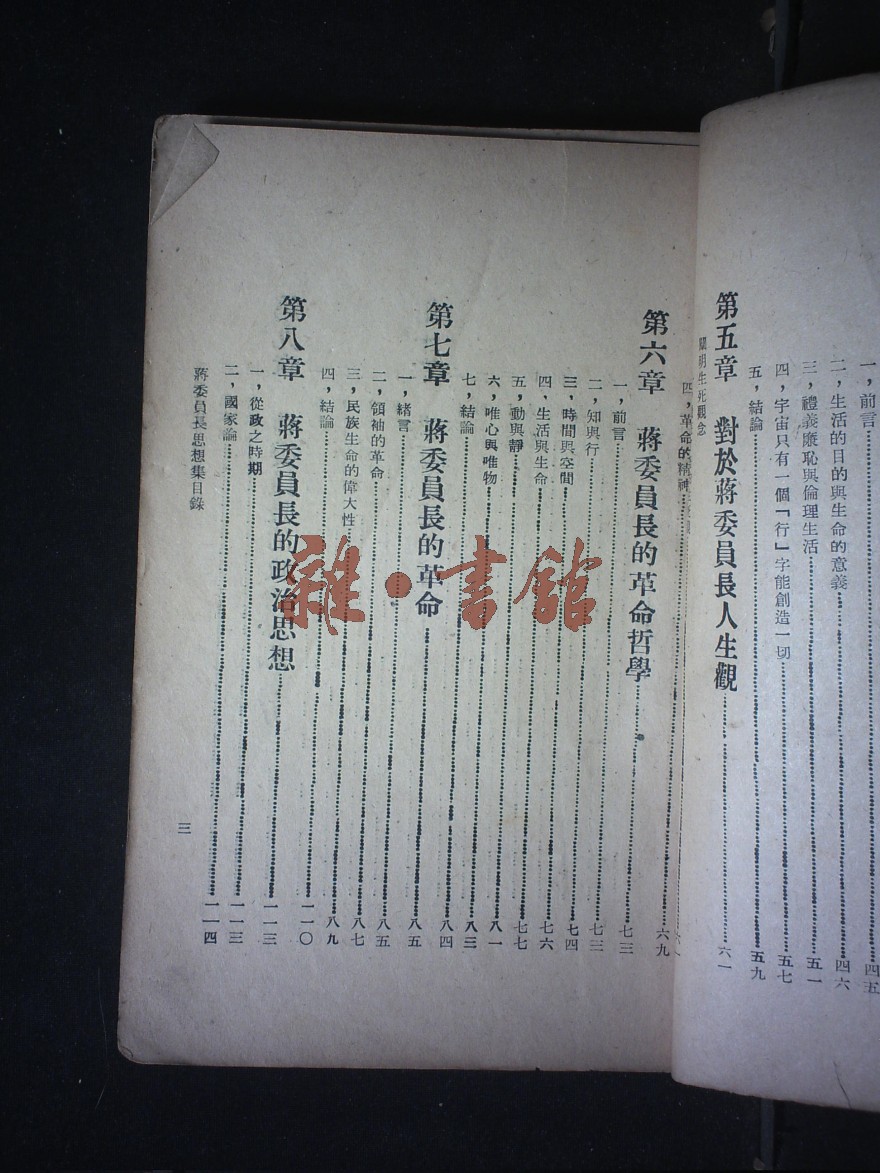 一，前言……四五
二，生活的目的與生命的意義……四六
三，禮義廉恥與倫理生活……五一
四，宇宙只有一個「行」字能創造一切……五七
五，結論……五九
第五章　對於蔣委員長人生觀……六一
生死觀念
四，革命的精神……六九
第六章　蔣委員長的革命哲學……七三
一，前言……七三
二，知與行……七四
三，時間與空間……七六
四，生活與生命……七七
五，動與靜……八一
六，唯心與唯物……八三
七，結論……八四
第七章　蔣委員長的革命……八五
一，緒言……八五
二，領袖的革命……八七
三，民族生命的偉大性……八九
四，結論……一一〇
第八章　蔣委員長的政治思想……一一三
一，從政之時期……一一三
二，國家論……一一四
蔣委員長思想集目錄
三
雜·書館